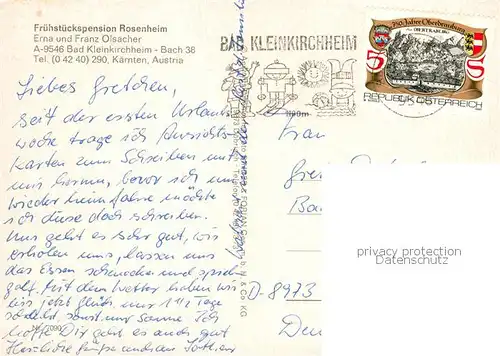 Frühstückspension Rosenheim
Erna und Franz Olsacher
A-9546 Bad Kleinkirchheim - Bach 38
Tel. (0 42 40) 290, Kärnten, Austria
BAD KLEINKIRCHHEIM
1100m
750 Jahre Obertrauburg
5
S
REPUBLIK ÖSTERREICH
Liebes Gretchen,
seit der ersten Urlaubs
woche trage ich Ansichts
karten zum Schreiben mit
mir herum, bevor ich nun
wieder heim fahre möchte
ich diese doch schreiben.
Uns geht es sehr gut, wir
erholen uns, lassen uns
das Essen schmecken und
golf. Mit dem Wetter haben wir
bis jetzt Glück, nur 1 1/2 Tage
schlecht sonst nur Sonne. Ich
hoffe Dir geht es auch gut
Herzliche Grüße
Frau
Gre
Ba
D-8973
Deu
privacy protection
Datenschutz